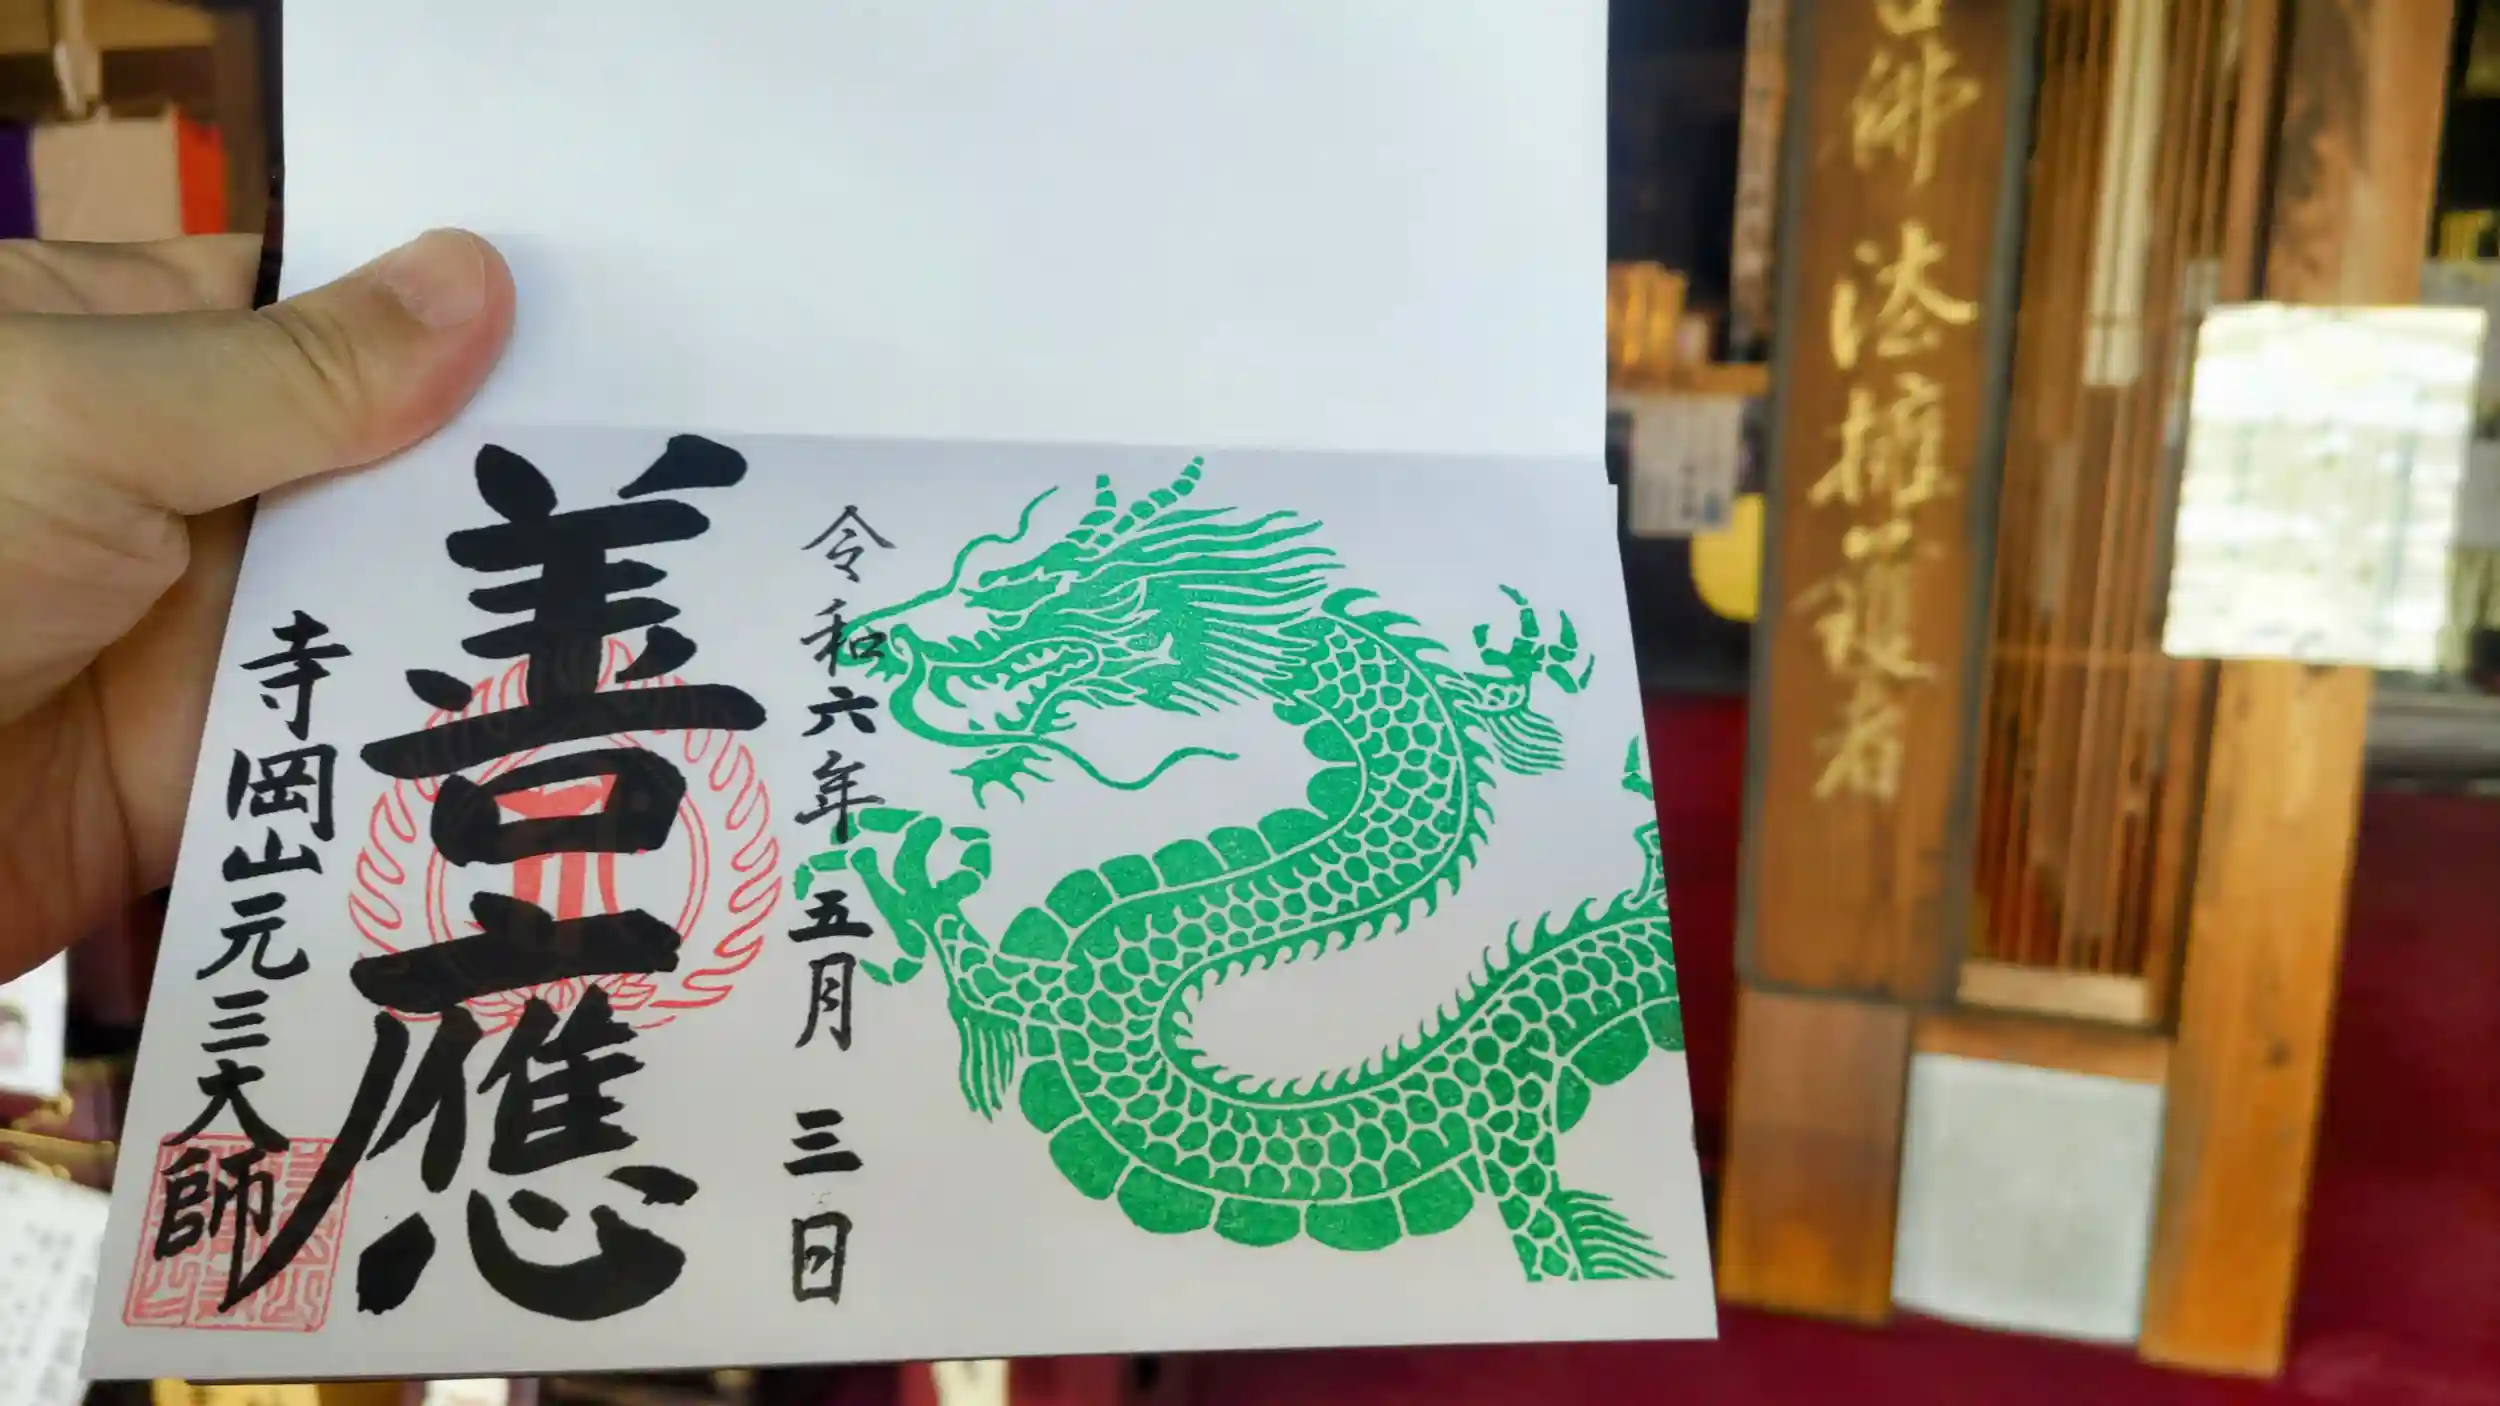 佛法擁護者
令和六年五月三日
善應
寺岡山元三大師